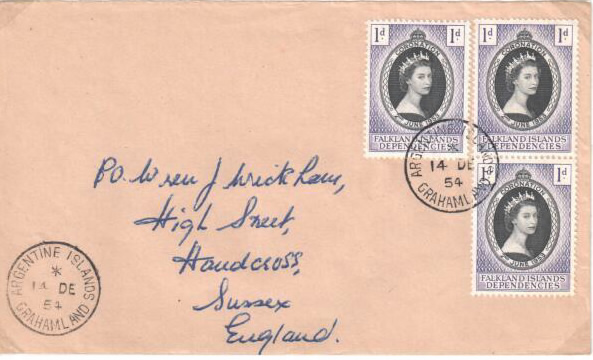 1d. 1d.
CORONATION
2 JUNE 1953
FALKLAND ISLANDS
DEPENDENCIES
1d. 1d.
CORONATION
2 JUNE 1953
FALKLAND ISLANDS
DEPENDENCIES
ARGENTINE ISLANDS
*
14 DE
54
GRAHAMLAND
1d. 1d.
CORONATION
2 JUNE 1953
FALKLAND ISLANDS
DEPENDENCIES
P.O. Wren J Wickham,
High Street,
Handcross,
Sussex
England.
ARGENTINE ISLANDS
*
14 DE
54
GRAHAMLAND